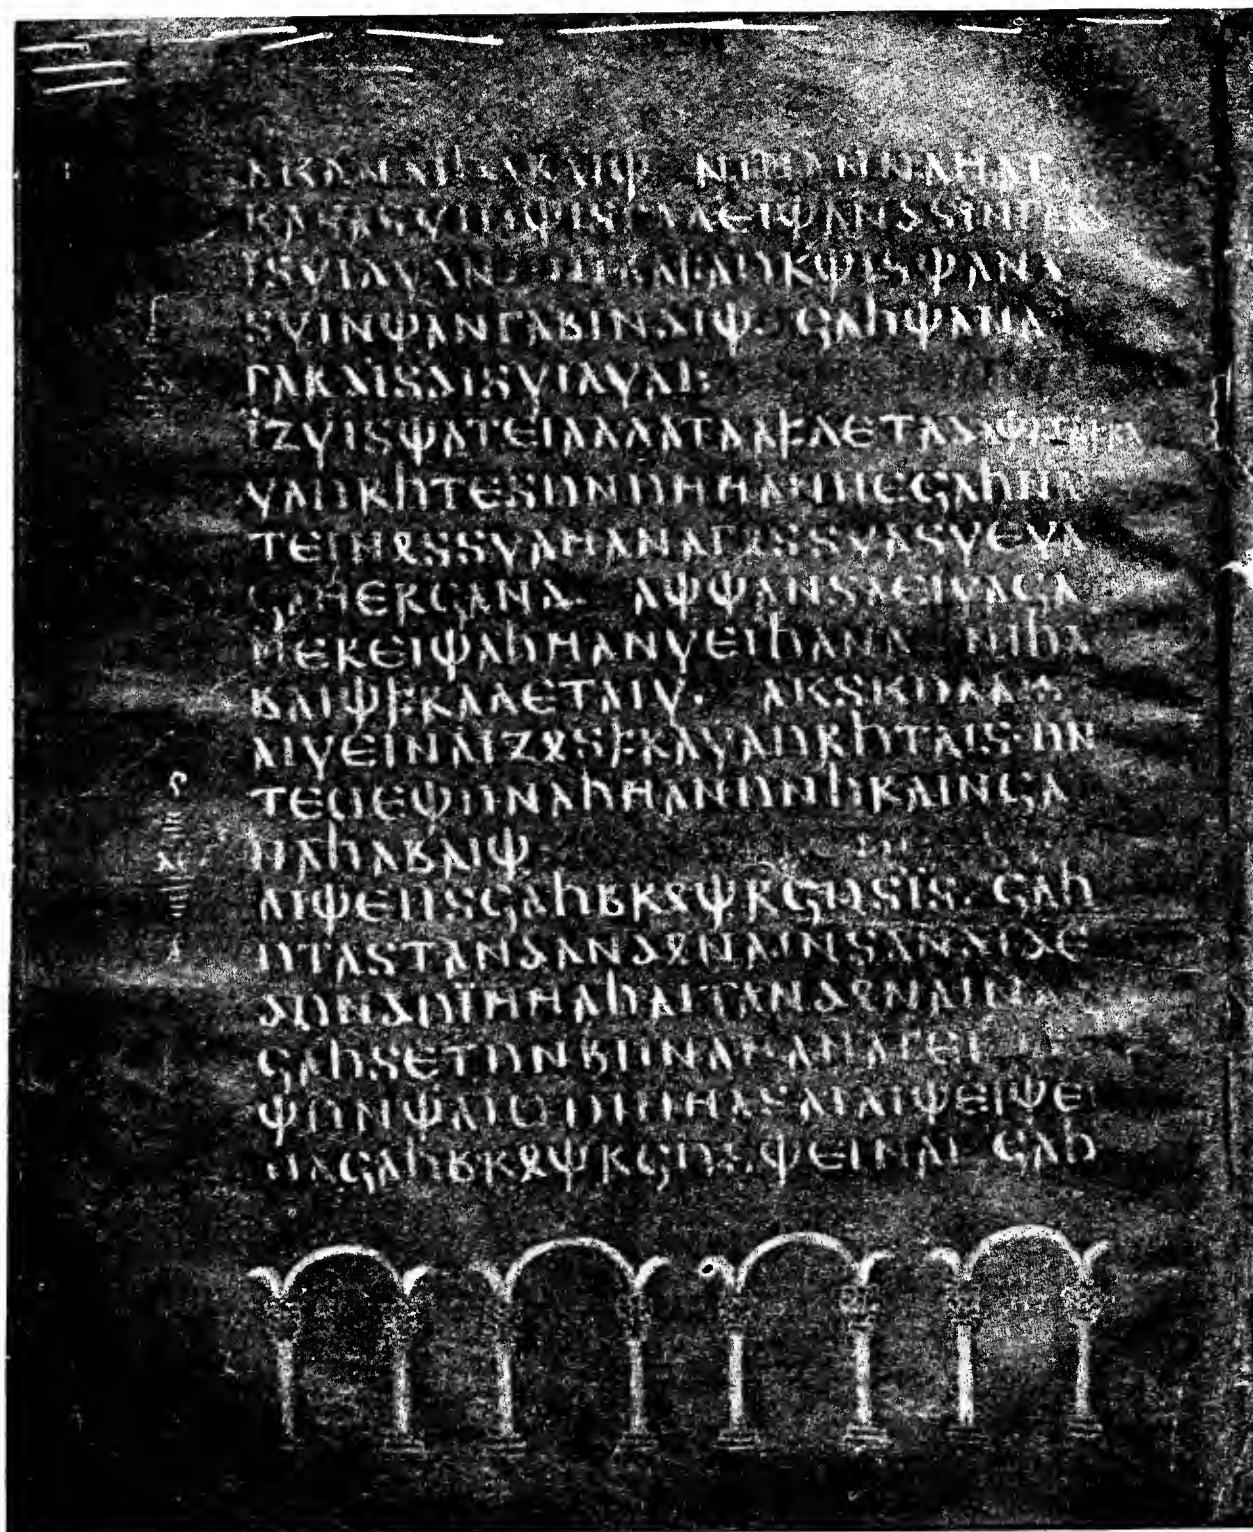 𐌰𐌺𐌰𐌽𐌳𐌹𐌷𐌰𐌱𐌰𐌹𐌸· 𐌽𐌹𐌼𐌰𐌽𐌽𐌰𐌼𐌰𐌲
𐌺𐌰𐍃𐌰𐍃𐍅𐌹𐌽𐌸𐌹𐍃𐌲𐌰𐌻𐌴𐌹𐌸𐌰𐌽𐌳𐍃𐌹𐌽𐌲𐌰𐍂𐌳
𐌹̈𐍃𐍅𐌹𐌻𐍅𐌰𐌽· 𐌽𐌹𐌱𐌰𐍆𐌰𐌿𐍂𐌸𐌹𐍃𐌸𐌰𐌽𐌰
𐍃𐍅𐌹𐌽𐌸𐌰𐌽𐌲𐌰𐌱𐌹𐌽𐌳𐌹𐌸· 𐌾𐌰𐌷𐌸𐌰𐌽𐌰
𐌲𐌰𐍂𐌳𐌹𐍃𐌳𐌹𐍃𐍅𐌹𐌻𐍅𐌰𐌹:
𐌹̈𐌶𐍅𐌹𐍃𐌸𐌰𐍄𐌴𐌹𐌰𐌻𐌻𐌰𐍄𐌰𐌰𐍆𐌻𐌴𐍄𐌰𐌳𐌰𐌸𐌰𐍄𐌰𐍆𐍂𐌰
𐍅𐌰𐌿𐍂𐌷𐍄𐌴𐍃𐌿𐌽𐌿𐌼𐌼𐌰𐌽𐌽𐌴𐌾𐌰𐌷𐌽𐌰𐌹
𐍄𐌴𐌹𐌽𐍉𐍃𐍃𐍅𐌰𐌼𐌰𐌽𐌰𐌲𐍉𐍃𐍃𐍅𐌰𐍃𐍅𐌴𐍅𐌰
𐌾𐌰𐌼𐌴𐍂𐌾𐌰𐌽𐌳· 𐌰𐌸𐌸𐌰𐌽𐍃𐌰𐌴𐌹𐍅𐌰𐌾𐌰
𐌼𐌴𐍂𐌴𐌹𐌸𐌰𐌷𐌼𐌰𐌽𐍅𐌴𐌹𐌷𐌰𐌽𐌰 𐌽𐌹𐌷𐌰
𐌱𐌰𐌹𐌸𐍆𐍂𐌰𐌻𐌴𐍄𐌰𐌹𐍅· 𐌰𐌺𐍃𐌺𐌿𐌻𐌰𐌹𐍃𐍄
𐌰𐌹𐍅𐌴𐌹𐌽𐌰𐌹𐌶𐍉𐍃𐍆𐍂𐌰𐍅𐌰𐌿𐍂𐌷𐍄𐌰𐌹𐍃· 𐌿𐌽
𐍄𐌴𐌵𐌴𐌸𐌿𐌽𐌰𐌷𐌼𐌰𐌽𐌿𐌽𐌷𐍂𐌰𐌹𐌽𐌾𐌰
𐌽𐌰𐌷𐌰𐌱𐌰𐌹𐌸
𐌰𐌹𐌸𐌴𐌹𐌹𐍃𐌾𐌰𐌷𐌱𐍂𐍉𐌸𐍂𐌾𐌿𐍃𐌹̈𐍃· 𐌾𐌰𐌷
𐌿𐍄𐌰𐍃𐍄𐌰𐌽𐌳𐌰𐌽𐌳𐍉𐌽𐌰𐌹𐌽𐍃𐌰𐌽𐌳𐌹𐌳𐌴
𐌳𐌿𐌽𐌳𐌿𐌹̈𐌼𐌼𐌰𐌷𐌰𐌹𐍄𐌰𐌽𐌳𐍉𐌽𐌰𐌹𐌽𐌰
𐌾𐌰𐌷𐍃𐌴𐍄𐌿𐌽𐌱𐌹𐌹𐌽𐌰𐌼𐌰𐌽𐌰𐌲𐌴𐌹 𐌵𐌴
𐌸𐌿𐌽𐌸𐌰𐌽𐌳𐌿𐌹𐌼𐌼𐌰𐍃𐌰𐌹𐌰𐌹𐌸𐌴𐌹𐌸𐌴𐌹
𐌽𐌰𐌾𐌰𐌷𐌱𐍂𐍉𐌸𐍂𐌾𐌿𐍃𐌸𐌴𐌹𐌽𐌰𐌹 𐌾𐌰𐌷